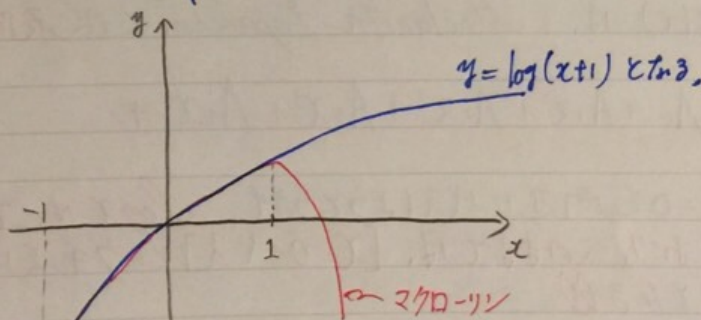 y
y = log(x+1) となる。
-1
1
x
マクローリン